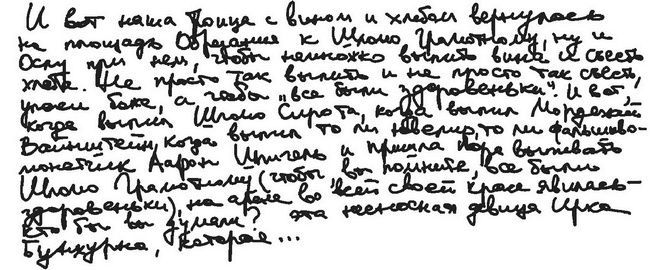 И вот наша Троица с вином и хлебом вернулась
на площадь Обрезания к Шломо Грамотному, ну и
Ослу при нем, чтобы немножко выпить вина и съесть
хлеба. Не просто так выпить и не просто так съесть,
упаси боже, а чтобы „все были здоровеньки". И вот,
когда выпил Шломо Сирота, когда выпил Мордехай
Вайнштейн, когда выпил то ли ювелир, то ли фальшиво-
монетчик Аарон Шпигель и пришла пора выпивать
Шломо Грамотному (чтобы, вы помните, все были
здоровеньки), на арене во всей своей красе явилась –
кто бы вы думали? эта несносная девица Ирка
Бунжурна, которая...